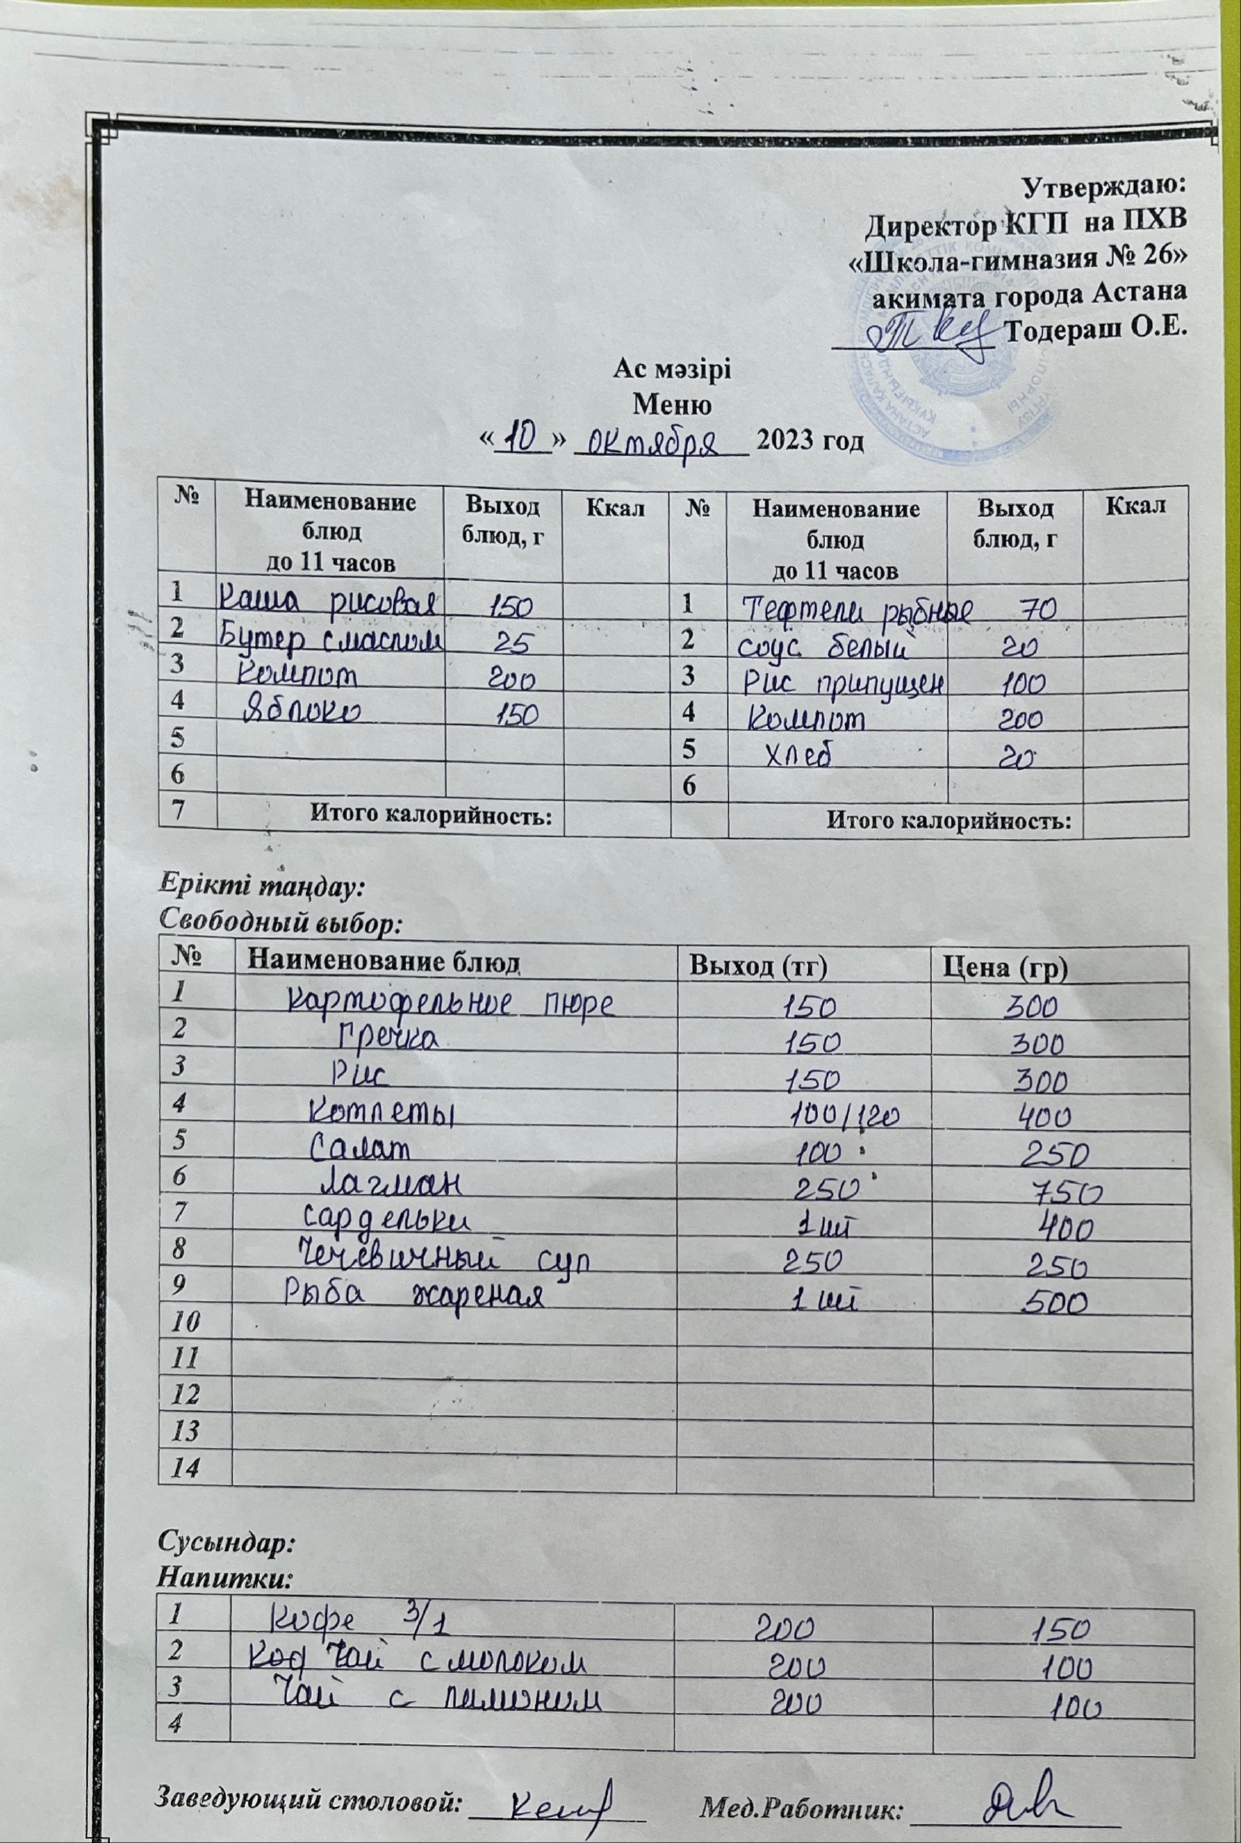 Утверждаю:
Директор КГП на ПХВ
«Школа-гимназия № 26»
акимата города Астана
Тодераш О.Е.
Ас мәзірі
Меню
«10» октября 2023 год
№ Наименование блюд до 11 часов Выход блюд, г Ккал № Наименование блюд до 11 часов Выход блюд, г Ккал
1 Каша рисовая 150 1 Тефтели рыбные 70
2 Бутер с маслом 25 2 соус белый 20
3 Компот 200 3 Рис припущен 100
4 Яблоко 150 4 Компот 200
5 5 хлеб 20
6 6
7 Итого калорийность: Итого калорийность:
Ерікті таңдау:
Свободный выбор:
№ Наименование блюд Выход (тг) Цена (гр)
1 картофельное пюре 150 300
2 Гречка 150 300
3 Рис 150 300
4 Котлеты 100/120 400
5 Салат 100 250
6 Лагман 250 750
7 сардельки 1 шт 400
8 Чечевичный суп 250 250
9 Рыба жареная 1 шт 500
10
11
12
13
14
Сусындар:
Напитки:
1 Кофе 3/1 200 150
2 Чай с молоком 200 100
3 Чай с лимоном 200 100
4
Заведующий столовой: Мед.Работник: